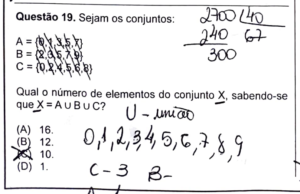 Questão 19. Sejam os conjuntos:
A = {0,1,3,5,7}
B = {2,3,5,7,9}
C = {0,2,4,5,6,8}
2700 40
240 67
300
Qual o número de elementos do conjunto X, sabendo-se
que X = A ∪ B ∪ C?
U - união
(A) 16.
(B) 12.
(C) 10.
(D) 1.
0,1,2,3,4,5,6,7,8,9
C-3 B-